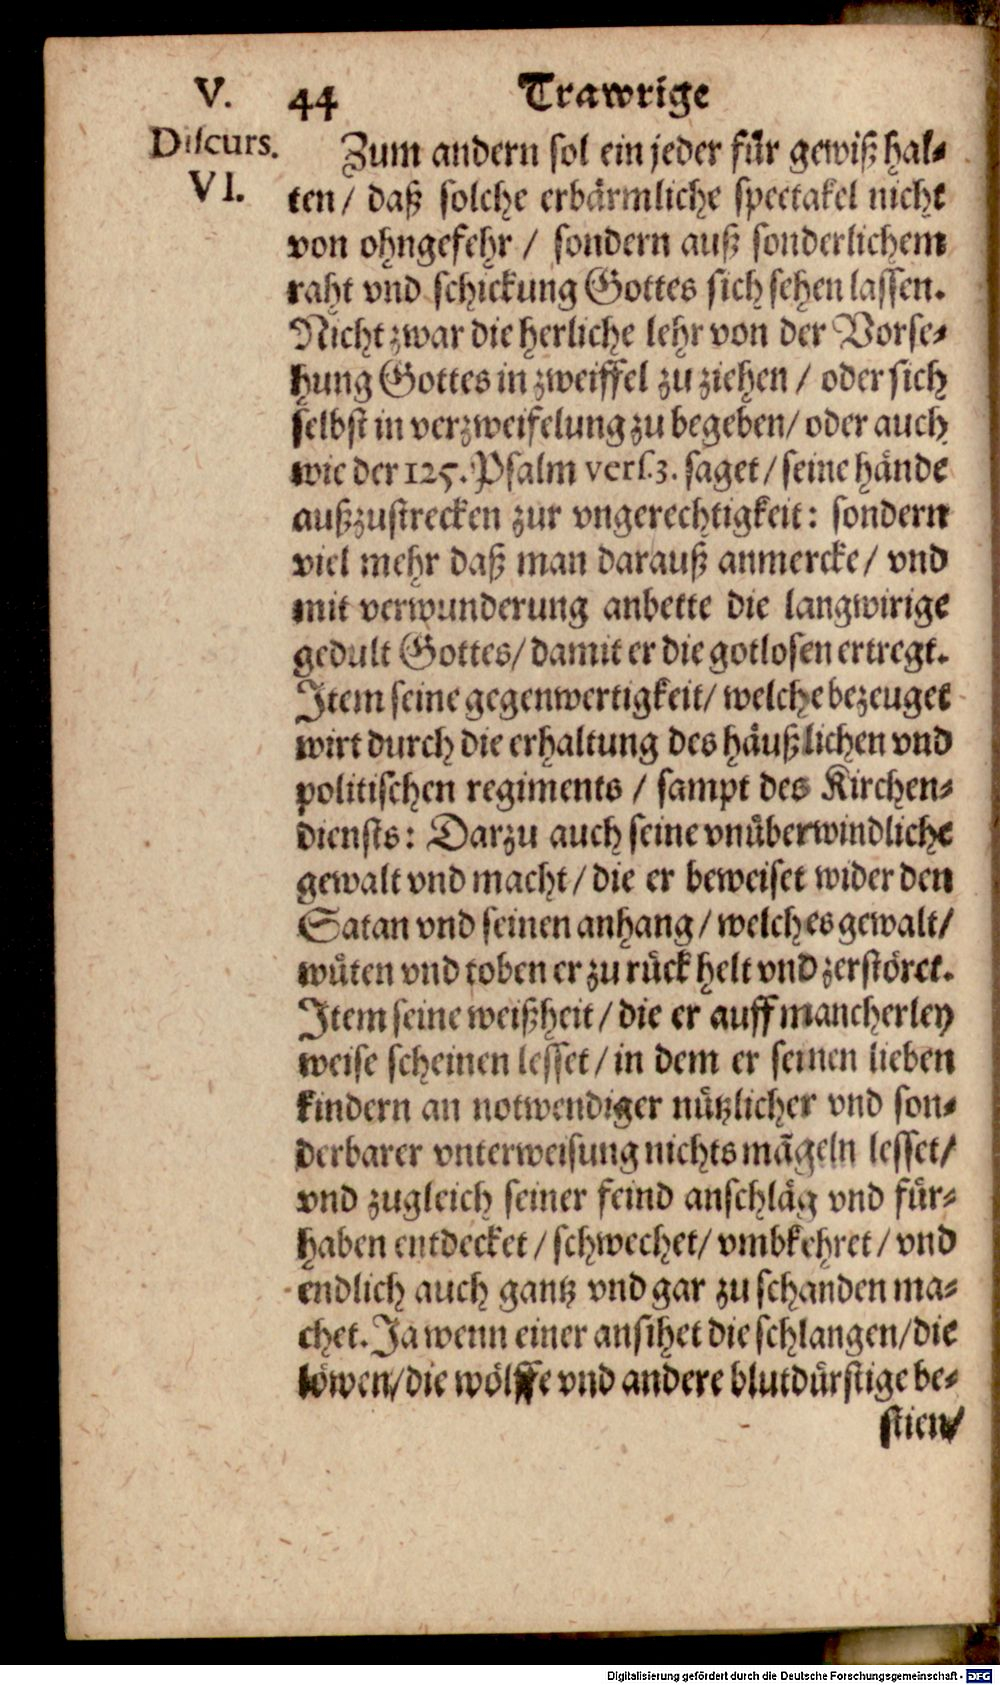 V. 44 Trawrige
Discurs.
VI.
Zum andern sol ein jeder für gewiß hal-
ten / daß solche erbärmliche spectakel nicht
von ohngefehr / sondern auß sonderlichem
raht vnd schickung Gottes sich sehen lassen.
Nicht zwar die herliche lehr von der Vorse-
hung Gottes in zweiffel zu ziehen / oder sich
selbst in verzweifelung zu begeben / oder auch
wie der 125. Psalm vers. 3. saget / seine hände
außzustrecken zur vngerechtigkeit: sondern
viel mehr daß man darauß anmercke / vnd
mit verwunderung anbette die langwirige
gedult Gottes / damit er die gotlosen ertregt.
Item seine gegenwertigkeit / welche bezeuget
wirt durch die erhaltung des häußlichen vnd
politischen regiments / sampt des Kirchen-
diensts: Darzu auch seine vnüberwindliche
gewalt vnd macht / die er beweiset wider den
Satan vnd seinen anhang / welches gewalt /
wüten vnd toben er zu rück helt vnd zerstöret.
Item seine weißheit / die er auff mancherley
weise scheinen lesset / in dem er seinen lieben
kindern an notwendiger nützlicher vnd son-
derbarer vnterweisung nichts mãgeln lesset /
vnd zugleich seiner feind anschläg vnd für-
haben entdecket / schwechet / vmbkehret / vnd
endlich auch gantz vnd gar zu schanden ma-
chet. Ja wenn einer ansihet die schlangen / die
löwen / die wölffe vnd andere blutdürstige be-
stien /
Digitalisierung gefördert durch die Deutsche Forschungsgemeinschaft - DFG